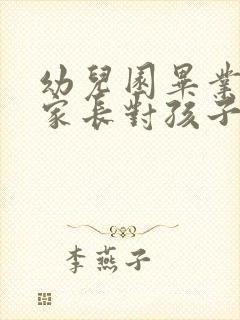 幼兒園畢業
家長對孩子
李燕子